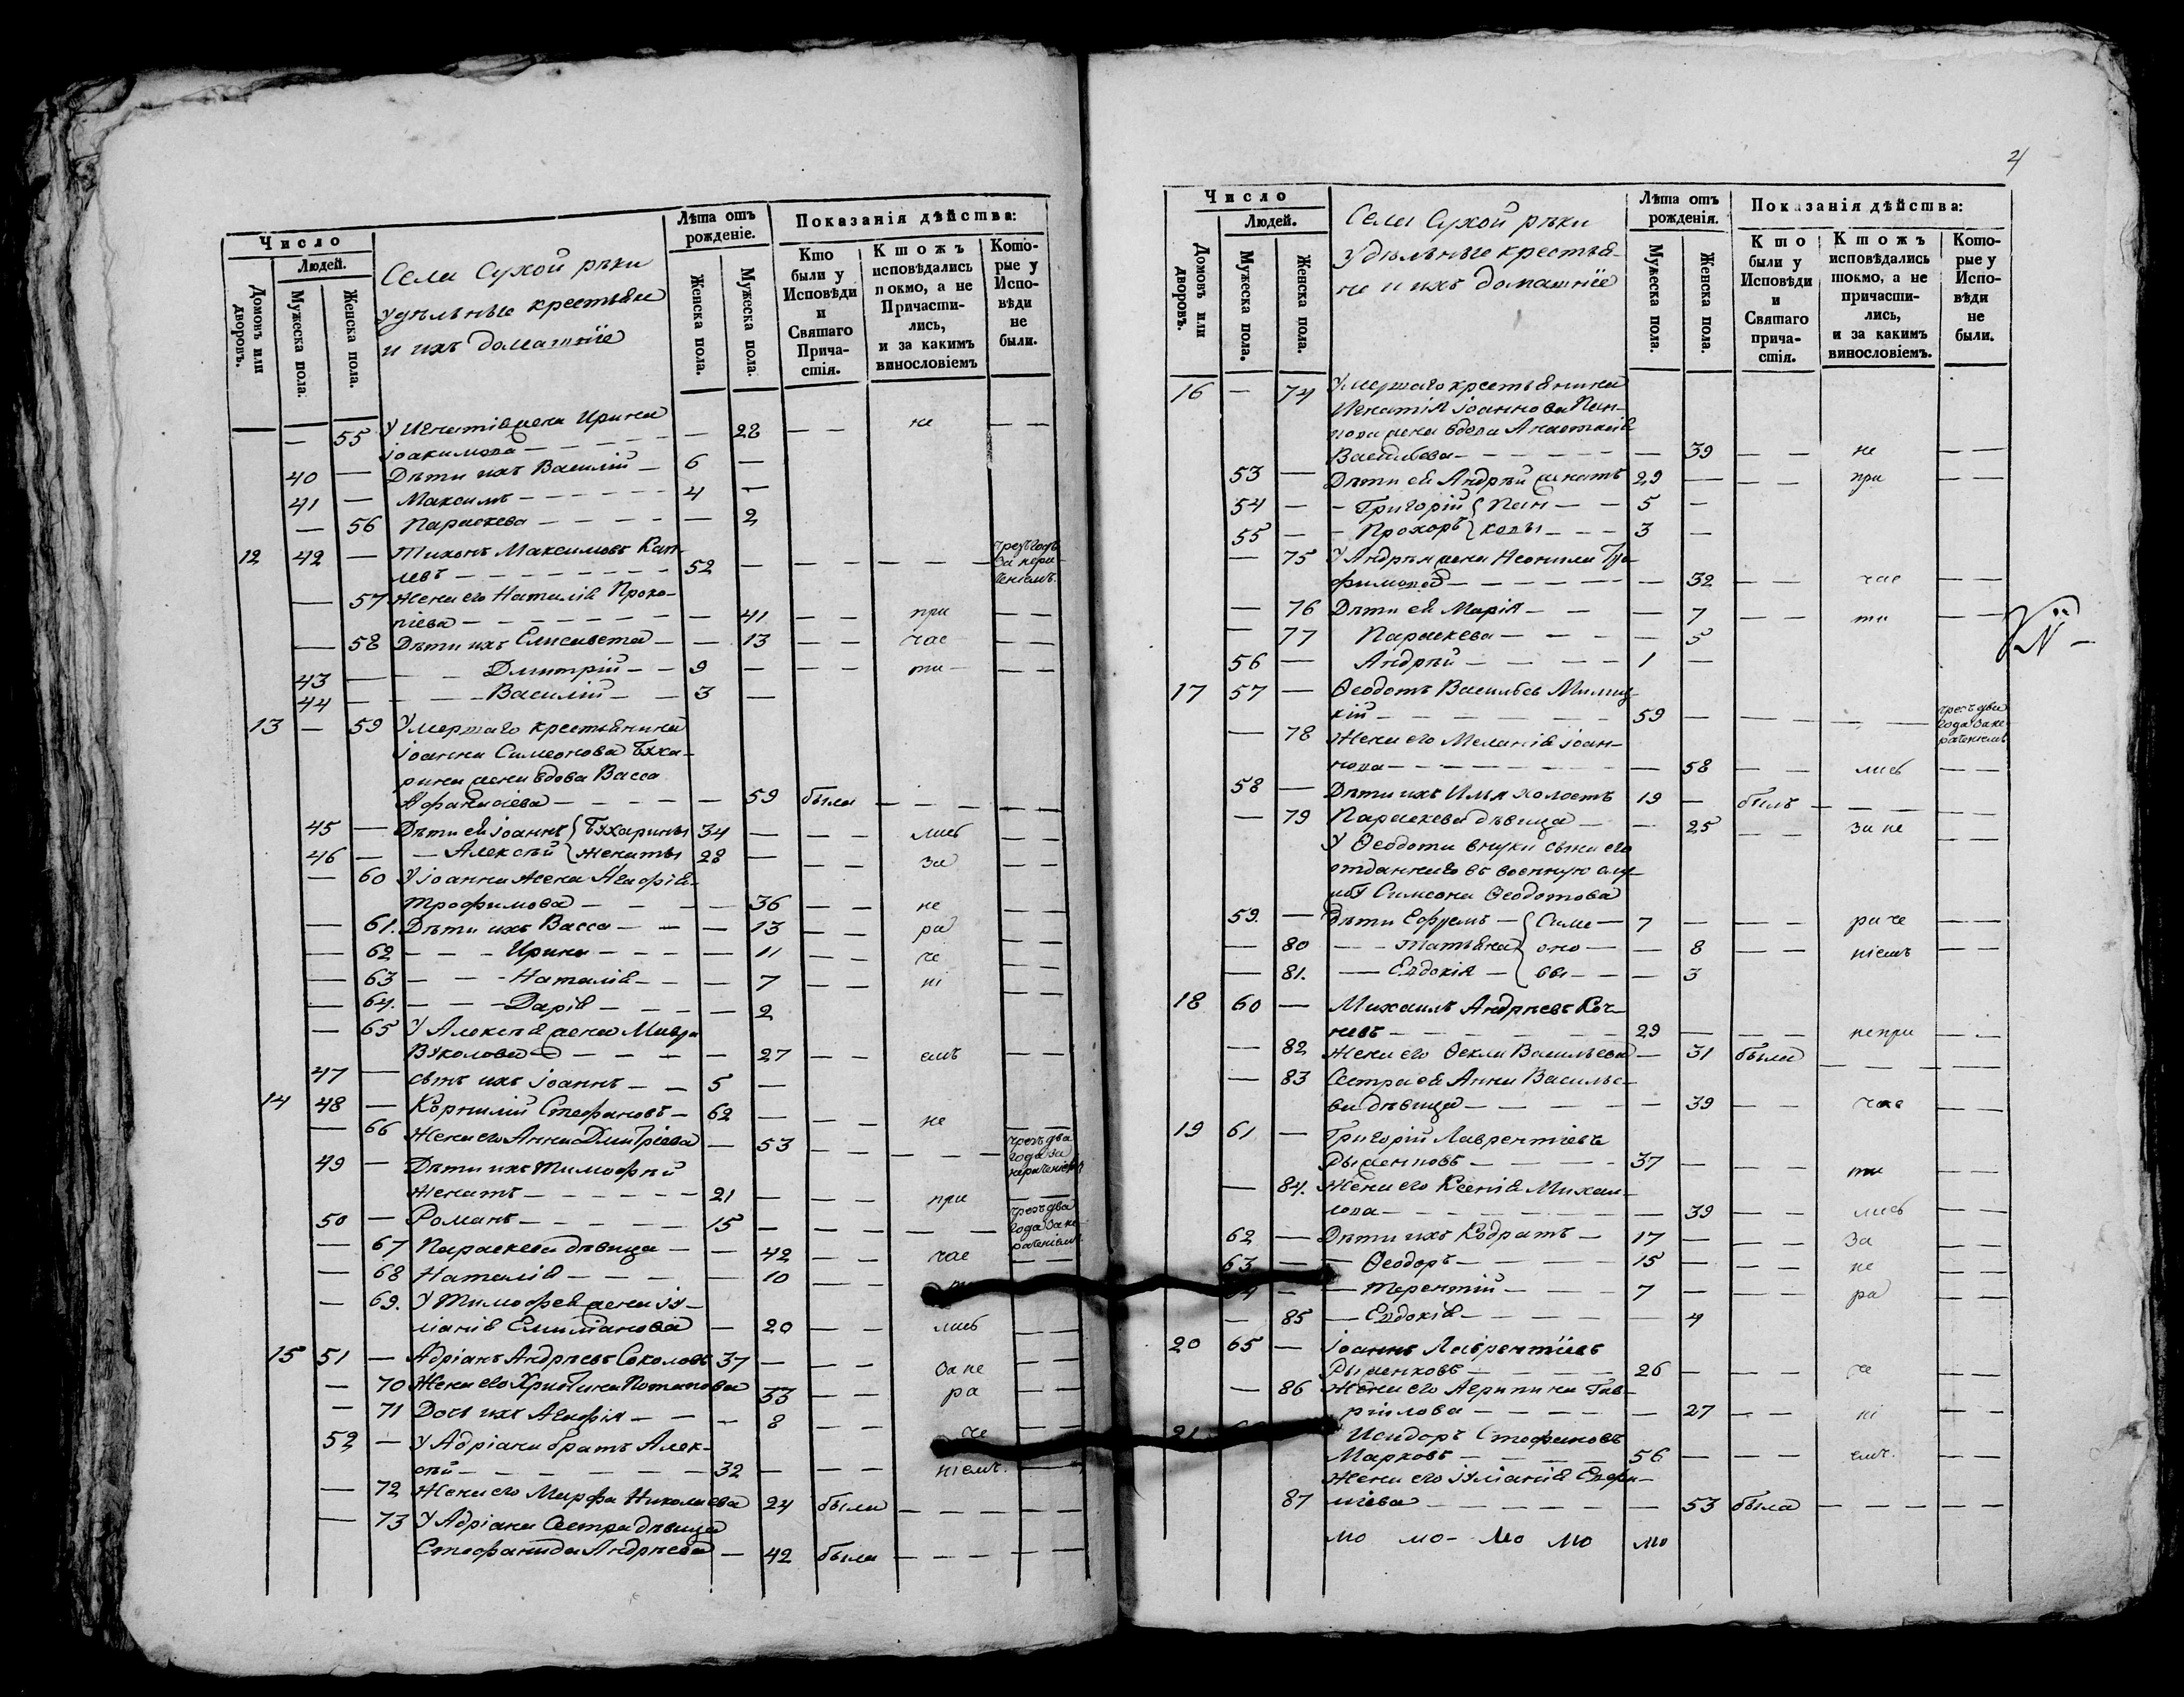 Число
Людей.
Домовъ или дворовъ.
Мужеска пола.
Женска пола.
Села Сухой рѣки
удѣльные крестьяне
и ихъ домашнїе
Лѣта отъ
рожденїе.
Женска пола.
Мужеска пола.
Показанія дѣйства:
Кто
были у
Исповѣди
и
Святаго
Прича-
стія.
Ктожъ
исповѣдались
токмо, а не
Причасти-
лись,
и за какимъ
винословіемъ
Кото-
рые у
Испо-
вѣди
не
были.
— 55 У Игнатія жена Ирина
Іоакимова — — 28 — — не — —
40 — Дѣти ихъ Василій — 6 —
41 — Максимъ — 4 —
— 56 Параскева — — 2
12 42 — Тихонъ Максимовъ
52 — — — — — чрезъ годъ
за нера-
ченіемъ.
— 57 Жена его Наталія Проко-
піева — — 41 — — при — —
— 58 Дѣти ихъ Елисавета — — 13 — — час — —
43 — Дмитрій — 9 — — — ти — —
44 — Василій — 3 —
13 — 59 Умершаго крестьянина
Іоанна Симеонова Бухарина
жена вдова Васса
Афанасіева — — 59 была — — — — —
45 — Дѣти ея Іоаннъ Бухарины 34 — — — лись
46 — Алексѣй женаты 28 — — — за
— 60 У Іоанна жена Агафія
Трофимова — — 36 — — не — —
— 61. Дѣти ихъ Васса — — 13 — — ра — —
— 62 Ирина — — 11 — — че — —
— 63 Наталія — — 7 — — ні — —
— 64. Дарія — — 2
— 65 У Алексѣя жена Мавра
Вуколова — — 27 — — емъ — —
47 — сынъ ихъ Іоаннъ — 5 —
14 48 — Корнилій Стефановъ — 62 — — — не — —
— 66 Жена его Анна Дмитріева — 53 — — — — чрезъ два
года за
нераченіемъ
49 — Дѣти ихъ Тимофѣй
женатъ — 21 — — — при — —
50 — Романъ — 15 — — — — чрезъ два
года за не
раченіемъ.
— 67 Параскева дѣвица — — 42 — — час — —
— 68 Наталія — — 10 — —
— 69. У Тимофея жена Іу-
ліанія Емиліанова — 20 — — лись — —
15 51 — Адріанъ Андреевъ Соколовъ 37 — — — за не — —
— 70 Жена его Христина Потапова 33 — — ра — —
— 71 Дочь ихъ Агафія — — 8 — — че — —
52 — У Адріана братъ Алек-
сѣй — 32 — — — ніемъ. — —
— 72 Жена его Марфа Николаева 24 была — — — — —
— 73 У Адріана Сестра дѣвица
Стефанида Андреева — 42 была — — — — —
4
Число
Людей.
Домовъ или дворовъ.
Мужеска пола.
Женска пола.
Села Сухой рѣки
удѣльные крестья-
не и ихъ домашнїе
Лѣта отъ
рожденія.
Мужеска пола.
Женска пола.
Показанія дѣйства:
Кто
были у
Исповѣди
и
Святаго
прича-
стія.
Ктожъ
исповѣдались
токмо, а не
причасти-
лись,
и за какимъ
винословіемъ.
Кото-
рые у
Испо-
вѣди
не
были.
16 — 74 Умершаго крестьянина
Игнатія Іоаннова
жена вдова Анастасія
Васильева — — 39 — — не — —
53 — Дѣти ея Андрѣй женатъ 29 — — — при — —
54 — Григорій — — 5 —
55 — Прохоръ — — 3 —
— 75 У Андрѣя жена Неонила Тро-
фимова — — 32 — — час — —
— 76 Дѣти ея Марія — — 7 — — ти — —
— 77 Параскева — — 5
56 — Андрѣй — 1 —
17 57 — Ѳеодотъ Васильевъ
кій — 59 — — — — чрезъ два
года за не
раченіемъ
— 78 Жена его Меланія Іоан-
нова — — 58 — — лись — —
58 — Дѣти ихъ Илья холостъ 19 — былъ — — — — —
— 79 Параскева дѣвица — — 25 — — за не — —
У Ѳеодота внуки сына его
отданнаго въ военную служ-
бу Симеона Ѳеодотова
59. — Дѣти Ефремъ — Симе — 7 — — — ра че — —
— 80 Татьяна оно — — 8 — — ніемъ — —
— 81. Евдокія — вы — — 3
18 60 — Михаилъ Андреевъ Коч-
невъ — 29 — — — не при — —
— 82 Жена его Ѳекла Васильева — 31 была — — — — —
— 83 Сестра ея Анна Василье-
ва дѣвица — — 39 — — час — —
19 61 — Григорій Лаврентіевъ
Рыженковъ — 37 — — — ти — —
— 84. Жена его Ксенія Михаи-
лова — — 39 — — лись — —
62 — Дѣти ихъ Кодратъ — 17 — — — за — —
63 — Ѳеодоръ — 15 — — — не — —
— Терентій — 7 — — — ра — —
— 85 Евдокія — — 4
20 65 — Іоаннъ Лаврентіевъ
Рыженковъ — 26 — — — че — —
— 86 Жена его Агрипина Гав-
риілова — — 27 — — ні — —
21 Исидоръ Стефановъ
Марковъ — 56 — — — емъ. — —
Жена его Іуліанія
87 — — 53 была — — — — —